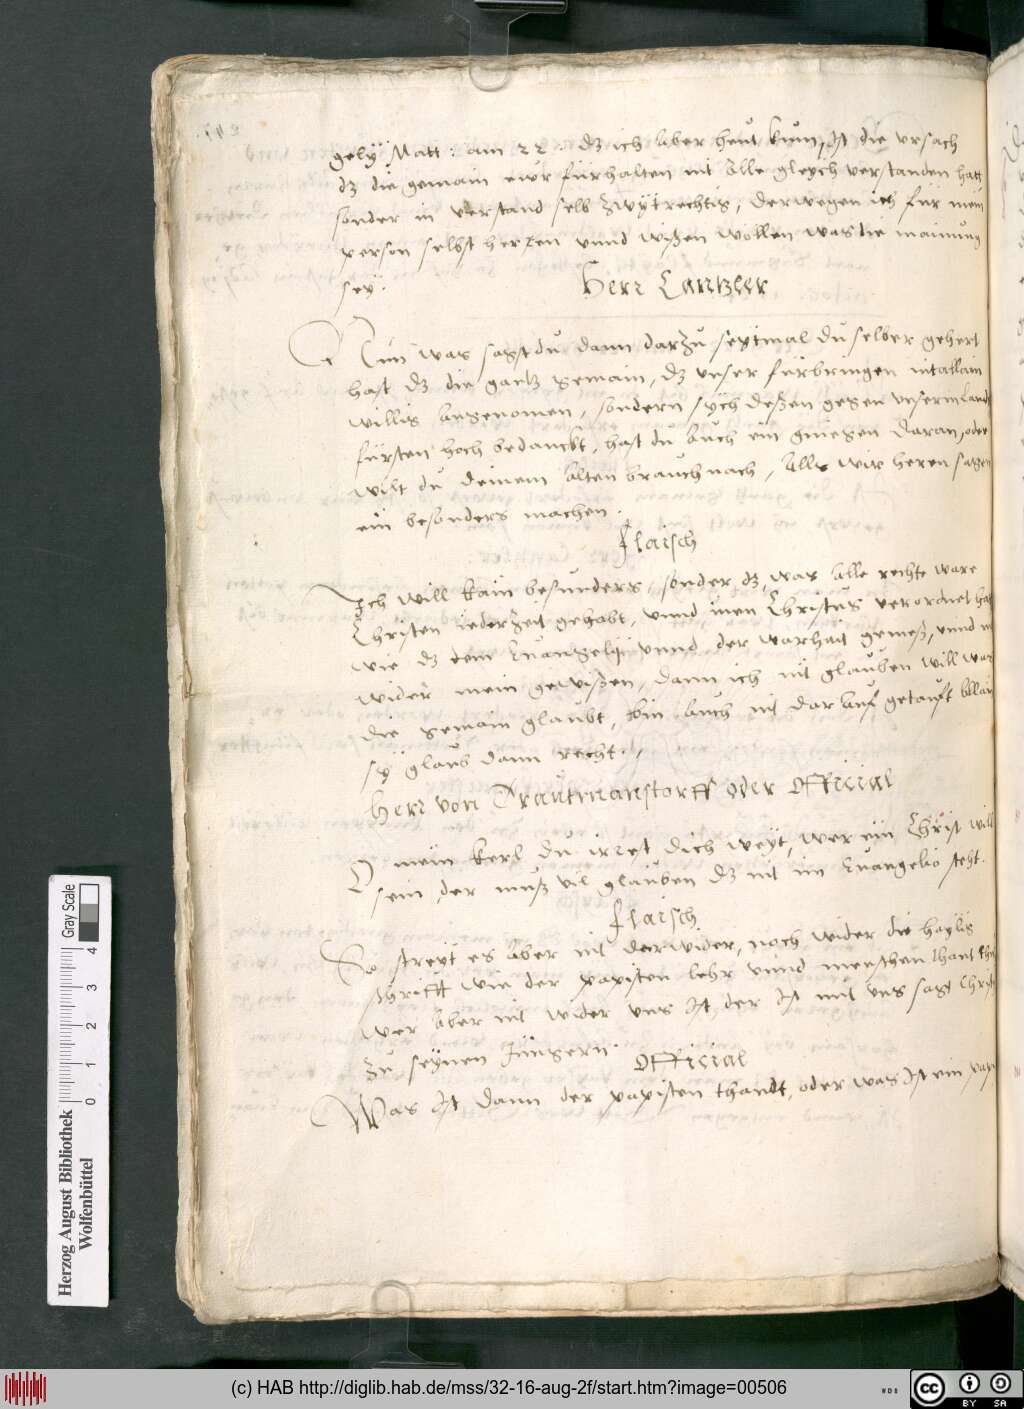 gely Matt: am 22. dz ich aber heut kum, Ist die vrsach
dz die gemain ewr fürhalten nit Alle gleych verstanden hatt
sonder in verstand selb zwytrechtig, derwegen ich für mein
person selbst herren vnnd wißen wollen was die mainung
sey.
Herr Cantzler
Nun was sagst du dann darzu seytmal du selber gehert
hast dz die gantz gemain, dz vnser fürbringen nit allain
willig angenomen, sondern sych deßen gegen vnserm Lands
fürsten hoch bedanckt, hast du auch ein gniegen daran, oder
wilt du deinem alten brauch nach, Alls wir heren sagen
ein besonders machen.
flaisch
Ich will kain besunders, sonder dz, was alle rechte ware
Christen iederzeit gehabt, vnnd inen Christus verordnet hat
wie dz dem Euangelij vnnd der warhait gemeß, vnnd
wider mein gewißen, dann ich nit glauben will was
die gemain glaubt, bin auch nit darauf getauft allain
sy glaub dann recht.
Herr von Trautmanstorff oder Official
O mein kerl du irrest dich weyt, wer ein Christ will
sein, der muß vil glauben dz nit im Euangelio steht.
flaisch
So streyt es aber nit darwider, noch wider die haylig
schrifft wie der papisten lehr vnnd menschen thant
wer aber nit wider vns Ist, der Ist mit vns sagt Christ
zu seynen Jüngern.
Official
Was Ist dann der papisten thandt, oder was Ist ein
Herzog August Bibliothek
Wolfenbüttel
0 1 2 3 4
Gray Scale
(c) HAB http://diglib.hab.de/mss/32-16-aug-2f/start.htm?image=00506
WDB
cc BY SA